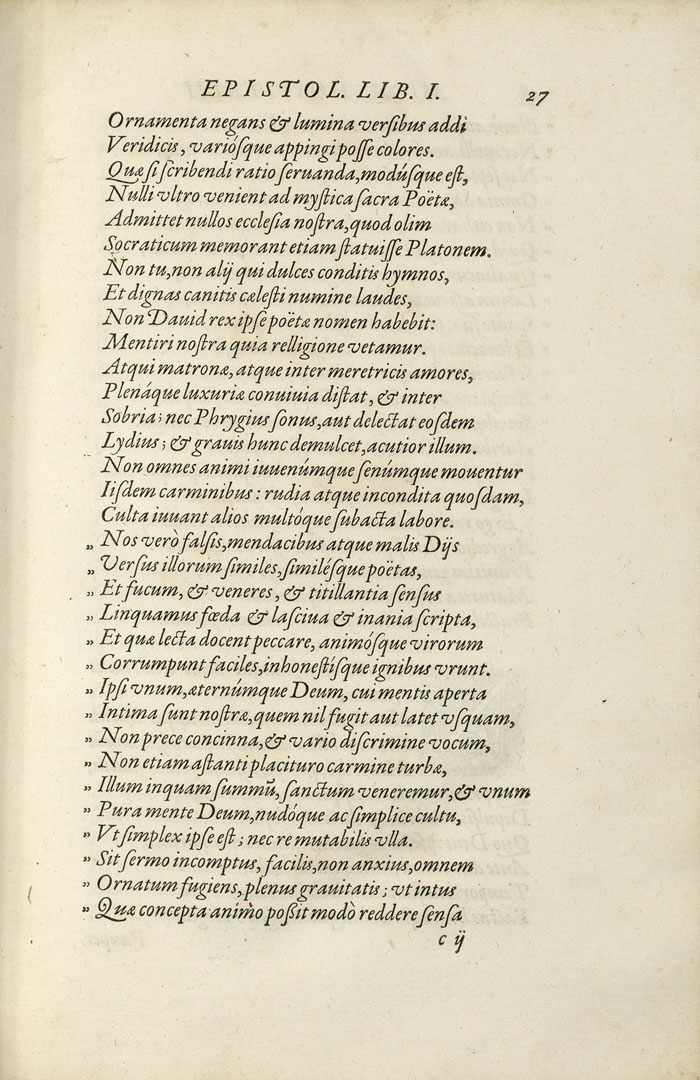 EPISTOL. LIB. I. 27
Ornamenta negans & lumina versibus addi
Veridicis, variósque appingi posse colores.
Quæ si scribendi ratio seruanda, modúsque est,
Nulli vltro venient ad mystica sacra Poëtæ,
Admittet nullos ecclesia nostra, quod olim
Socraticum memorant etiam statuisse Platonem.
Non tu, non alij qui dulces conditis hymnos,
Et dignas canitis cælesti numine laudes,
Non Dauid rex ipse poëtæ nomen habebit:
Mentiri nostra quia relligione vetamur.
Atqui matronæ, atque inter meretricis amores,
Plenáque luxuriæ conuiuia distat, & inter
Sobria; nec Phrygius sonus, aut delectat eosdem
Lydius; & grauis hunc demulcet, acutior illum.
Non omnes animi iuuenúmque senúmque mouentur
Iisdem carminibus: rudia atque incondita quosdam,
Culta iuuant alios multóque subacta labore.
„ Nos verò falsis, mendacibus atque malis Dijs
„ Versus illorum similes, similésque poëtas,
„ Et fucum, & veneres, & titillantia sensus
„ Linquamus fœda & lasciua & inania scripta,
„ Et quæ lecta docent peccare, animósque virorum
„ Corrumpunt faciles, inhonestísque ignibus vrunt.
„ Ipsi vnum, æternúmque Deum, cui mentis aperta
„ Intima sunt nostræ, quem nil fugit aut latet vsquam,
„ Non prece concinna, & vario discrimine vocum,
„ Non etiam astanti placituro carmine turbæ,
„ Illum inquam summū, sanctum veneremur, & vnum
„ Pura mente Deum, nudóque ac simplice cultu,
„ Vt simplex ipse est; nec re mutabilis vlla.
„ Sit sermo incomptus, facilis, non anxius, omnem
„ Ornatum fugiens, plenus grauitatis; vt intus
„ Quæ concepta animo possit modò reddere sensa
c ij